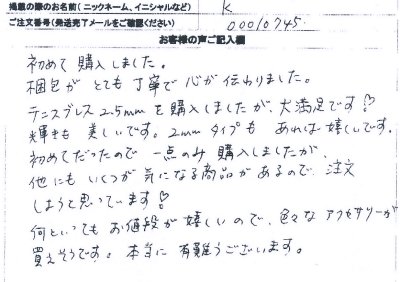 掲載の際のお名前(ニックネーム、イニシャルなど) K
ご注文番号(発送完了メールをご確認ください) 00010745
お客様の声ご記入欄
初めて購入しました。
梱包がとても丁寧で心が伝わりました。
テニスブレス2.5mmを購入しましたが、大満足です♡
輝きも美しいです。2mmタイプもあれば嬉しいです。
初めてだったので一点のみ購入しましたが、
他にもいくつか気になる商品があるので、注文
しようと思っています♡
何といってもお値段が嬉しいので、色々なアクセサリーが
買えそうです。本当に有難うございます。